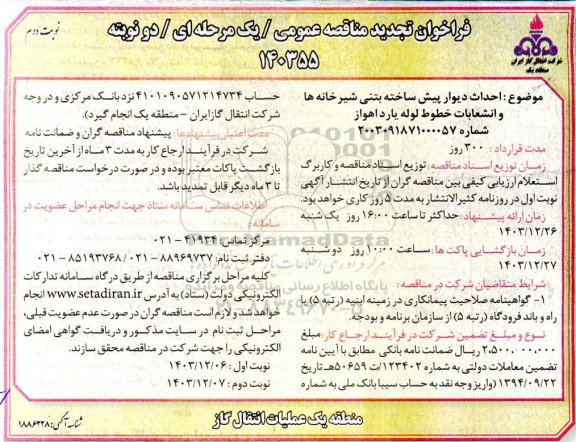 فراخوان تجدید مناقصه عمومی / یک مرحله ای / دو نوبته
۱۴۰۳۵۵
نوبت دوم
شرکت انتقال گاز ایران
منطقه یک
موضوع : احداث دیوار پیش ساخته بتنی شیرخانه ها
و انشعابات خطوط لوله یارد اهواز
شماره ۲۰۰۳۰۹۱۸۷۱۰۰۰۰۵۷
مدت قرارداد : ۳۰۰ روز
زمان توزیع اسناد مناقصه: توزیع اسناد مناقصه و کاربرگ
استعلام ارزیابی کیفی بین مناقصه گران از تاریخ انتشار آگهی
نوبت اول در روزنامه کثیرالانتشار به مدت ۵ روز کاری خواهد بود.
زمان ارائه پیشنهاد: حداکثر تا ساعت ۱۶:۰۰ روز یک شنبه
۱۴۰۳/۱۲/۲۶
زمان بازگشایی پاکت ها: ساعت ۱۰:۰۰ روز دوشنبه
۱۴۰۳/۱۲/۲۷
شرایط متقاضیان شرکت در مناقصه:
۱- گواهینامه صلاحیت پیمانکاری در زمینه ابنیه (رتبه ۵) یا
راه و باند فرودگاه (رتبه ۵) از سازمان برنامه و بودجه.
نوع و مبلغ تضمین شرکت در فرآیند ارجاع کار: مبلغ
۲،۵۰۰،۰۰۰،۰۰۰ ریال ضمانت نامه بانکی مطابق با آیین نامه
تضمین معاملات دولتی به شماره ۱۲۳۴۰۲/ت ۵۰۶۵۹هـ تاریخ
۱۳۹۴/۰۹/۲۲ (واریز وجه نقد به حساب سیبا بانک ملی به شماره
حساب ۴۱۰۱۰۹۰۵۷۱۲۱۴۷۳۴ نزد بانک مرکزی و در وجه
شرکت انتقال گاز ایران - منطقه یک انجام گیرد).
مدت اعتبار پیشنهادها: پیشنهاد مناقصه گران و ضمانت نامه
شرکت در فرآیند ارجاع کار به مدت ۳ ماه از آخرین تاریخ
بازگشت پاکات معتبر بوده و در صورت درخواست مناقصه گذار
تا ۳ ماه دیگر قابل تمدید باشد.
اطلاعات تماس سامانه ستاد جهت انجام مراحل عضویت در
سامانه:
مرکز تماس: ۴۱۹۳۴ - ۰۲۱
دفتر ثبت نام: ۸۸۹۶۹۷۳۷ - ۰۲۱ / ۸۵۱۹۳۷۶۸ - ۰۲۱
کلیه مراحل برگزاری مناقصه از طریق درگاه سامانه تدارکات
الکترونیکی دولت (ستاد) به آدرس www.setadiran.ir انجام
خواهد شد و لازم است مناقصه گران در صورت عدم عضویت قبلی،
مراحل ثبت نام در سایت مذکور و دریافت گواهی امضای
الکترونیکی را جهت شرکت در مناقصه محقق سازند.
نوبت اول : ۱۴۰۳/۱۲/۰۶
نوبت دوم : ۱۴۰۳/۱۲/۰۷
منطقه یک عملیات انتقال گاز
شناسه آگهی: ۱۸۸۶۲۲۸